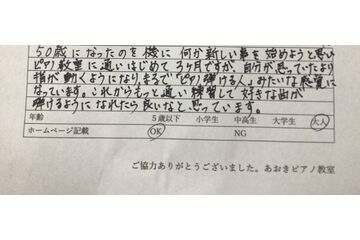 50歳になったのを機に何か新しい事を始めようと思い
ピアノ教室に通いはじめて3ヶ月ですが、自分が思っていたより
指が動くようになり、まるで「ピアノ弾ける人」みたいな感覚に
なっています。これからもっと通い練習して好きな曲が
弾けるようになれたら良いなと思っています。
年齢 5歳以下 小学生 中高生 大学生 大人
ホームページ記載 OK NG
ご協力ありがとうございました。あおきピアノ教室